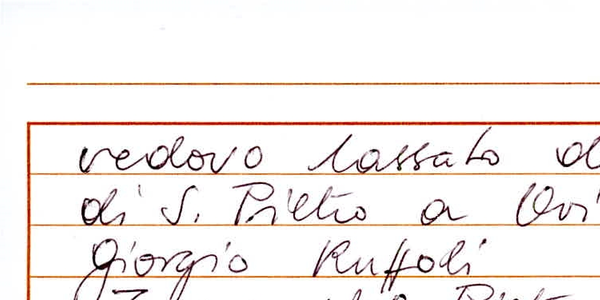 vedovo lassato d
di S. Pietro a Ovi
Giorgio Ruffodi